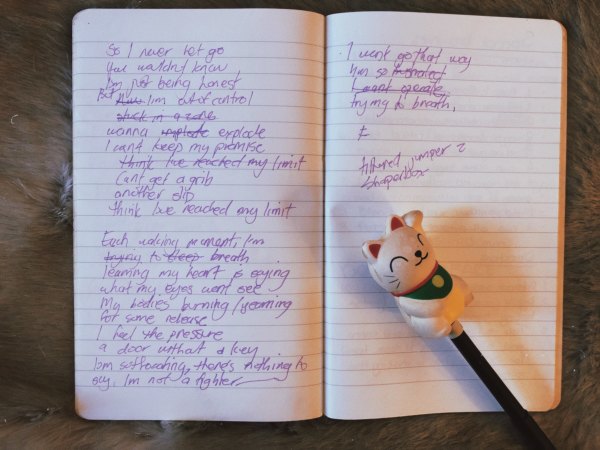 So I never let go
You wouldn't know
I'm just being honest
But I'm out of control
stuck in a zone
wanna explode explode
I cant keep my promise
think I've reached my limit
Cant get a grib
another slip
think I've reached my limit
Each waking moment, I'm
trying to sleep breath
learning my heart is saying
what my eyes wont see
My bodies burning / yearning
for some release
I feel the pressure
a door without a key
I'm suffocating, there's nothing to
say, I'm not a fighter
I wont go that way
him so
I want operate
trying to breath,
t
filtered jumper 2
Shaperbox